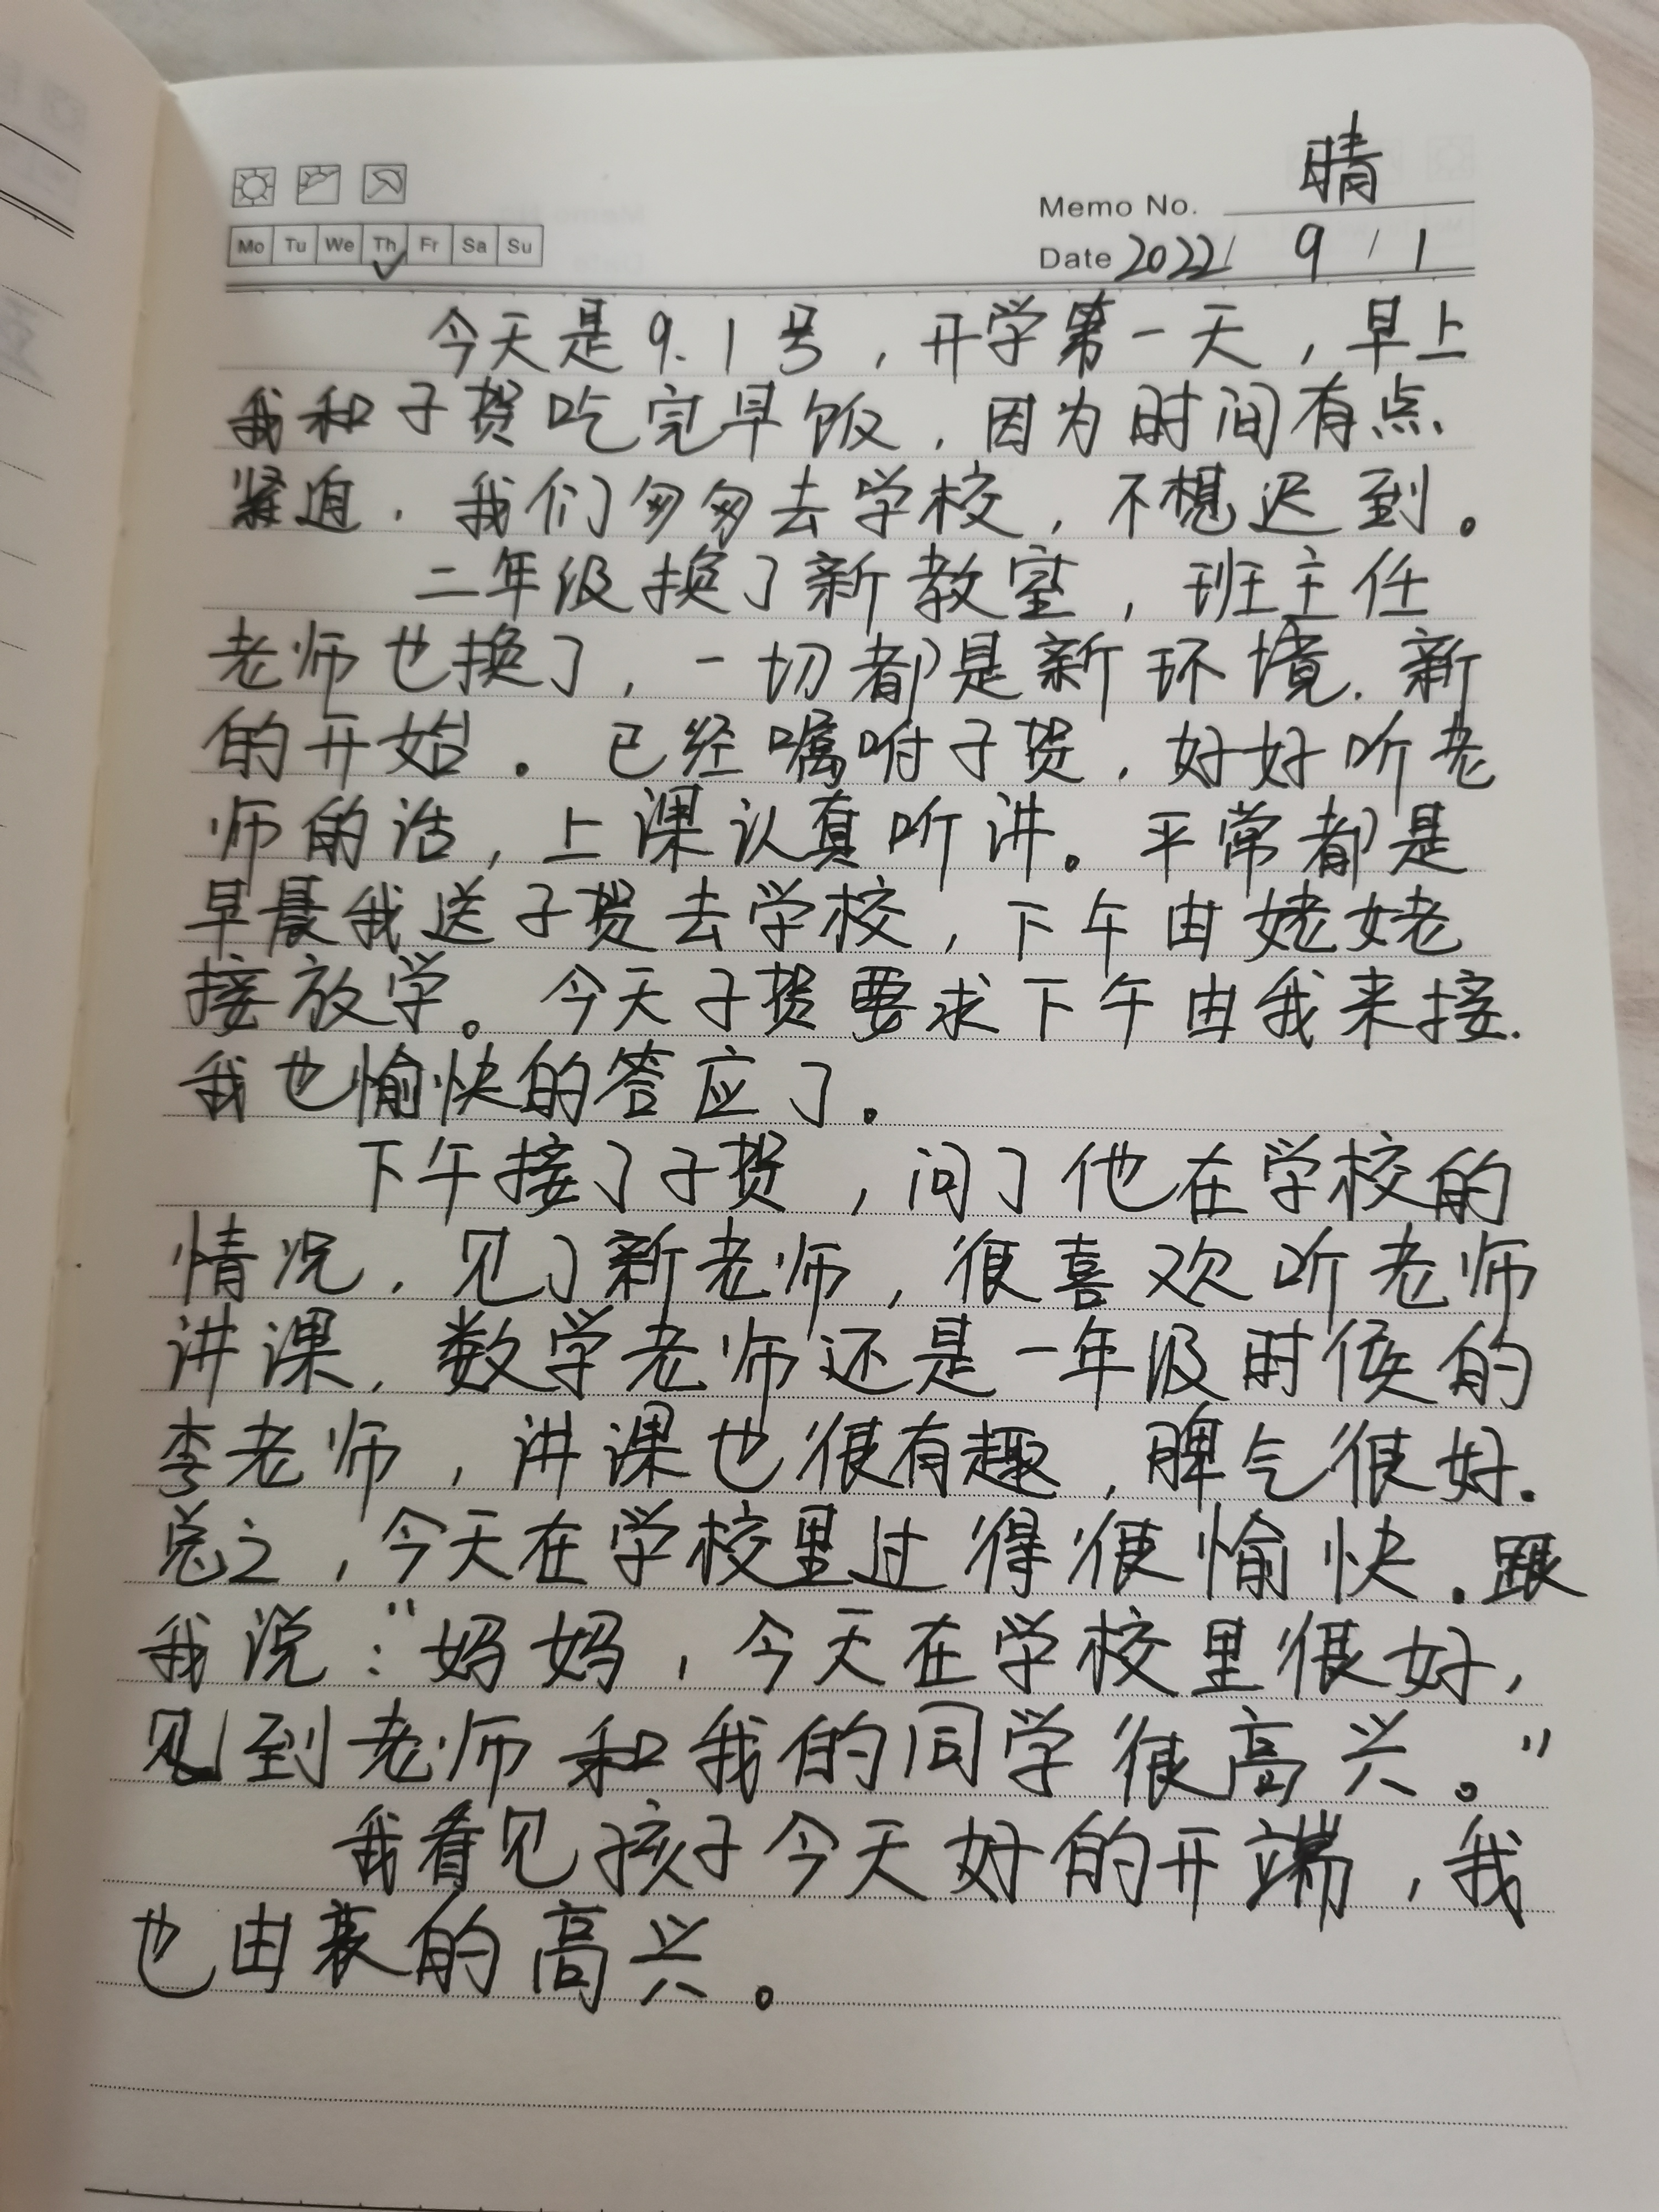 晴
Memo No.
Mo Tu We Th Fr Sa Su
Date 2022/ 9 / 1
今天是9.1号，开学第一天，早上
我和子贺吃完早饭，因为时间有点
紧迫，我们匆匆去学校，不想迟到。
二年级换了新教室，班主任
老师也换了，一切都是新环境.新
的开始。已经嘱咐子贺，好好听老
师的话，上课认真听讲。平常都是
早晨我送子贺去学校，下午由姥姥
接放学。今天子贺要求下午由我来接.
我也愉快的答应了。
下午接了子贺，问了他在学校的
情况，见了新老师，很喜欢听老师
讲课，数学老师还是一年级时候的
李老师，讲课也很有趣，脾气很好.
总之，今天在学校里过得很愉快.跟
我说："妈妈，今天在学校里很好，
见到老师和我的同学很高兴。"
我看见孩子今天好的开端，我
也由衷的高兴。